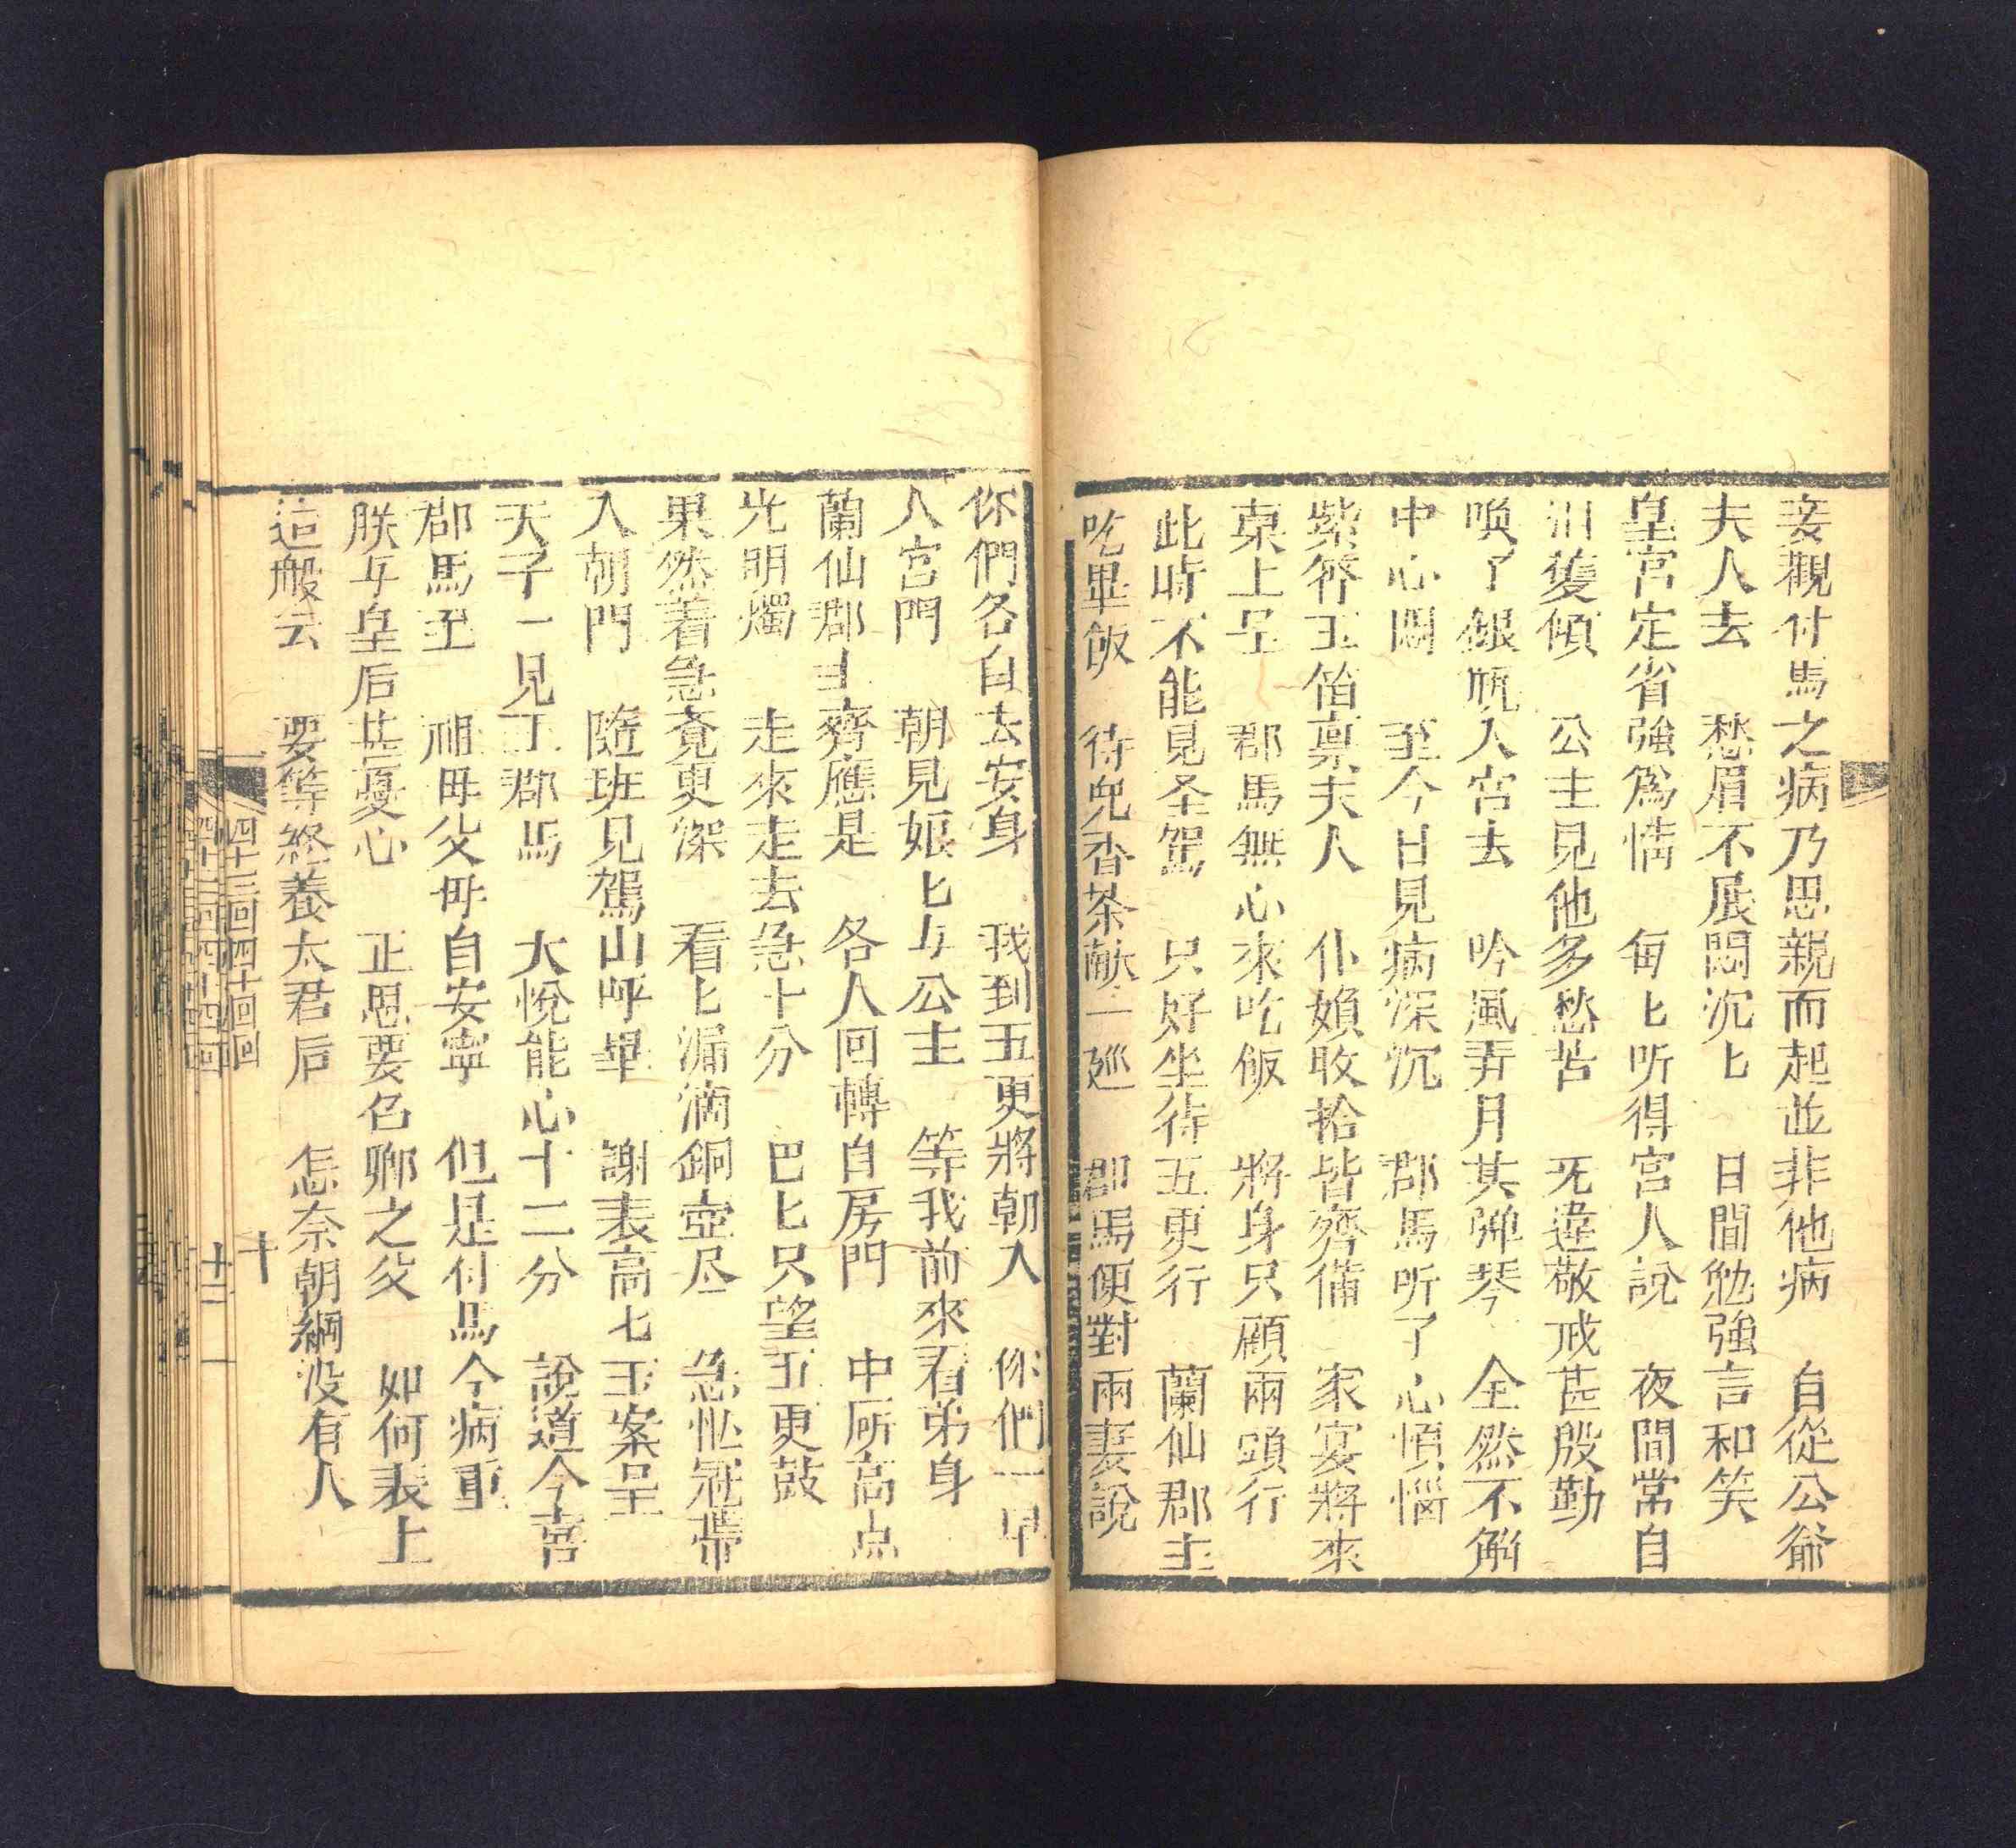 妾觀付馬之病乃思親而起並非他病 自從公爺
夫人去 愁眉不展悶沉匕 日間勉強言和笑
皇宮定省強為情 每匕听得宮人說 夜間常自
泪雙傾 公主見他多愁苦 无違敬戒甚殷勤
喚了銀瓶入宮去 吟風弄月共弹琴 全然不觧
中心悶 至今日見病深沉 郡馬听了心煩惱
紫符玉笛禀夫人 仆婦收拾皆齊備 家宴將來
桌上呈 郡馬無心來吃飯 將身只顧兩頭行
此時不能見圣駕 只好坐待五更行 蘭仙郡主
吃畢飯 待児香茶献一廵 郡馬便對兩妻說
你們各自去安身 我到五更將朝入 你們一早
入宮門 朝見娘匕与公主 等我前來看弟身
蘭仙郡主齊應是 各人回轉自房門 中所高点
光明燭 走來走去急十分 巴匕只望五更鼓
果然着急竟更深 看匕漏滴銅壺尽 急忙冠帶
入朝門 隨班見駕山呼畢 謝表高七玉案呈
天子一見丁郡馬 大悅能心十二分 說道今喜
郡馬至 祖毋父毋自安寧 但是付馬今病重
朕与皇后甚憂心 正思要召卿之父 如何表上
這般云 要等終養太君后 怎奈朝綱没有人
四十三回四十回回
十
四十三回四十四回
十二